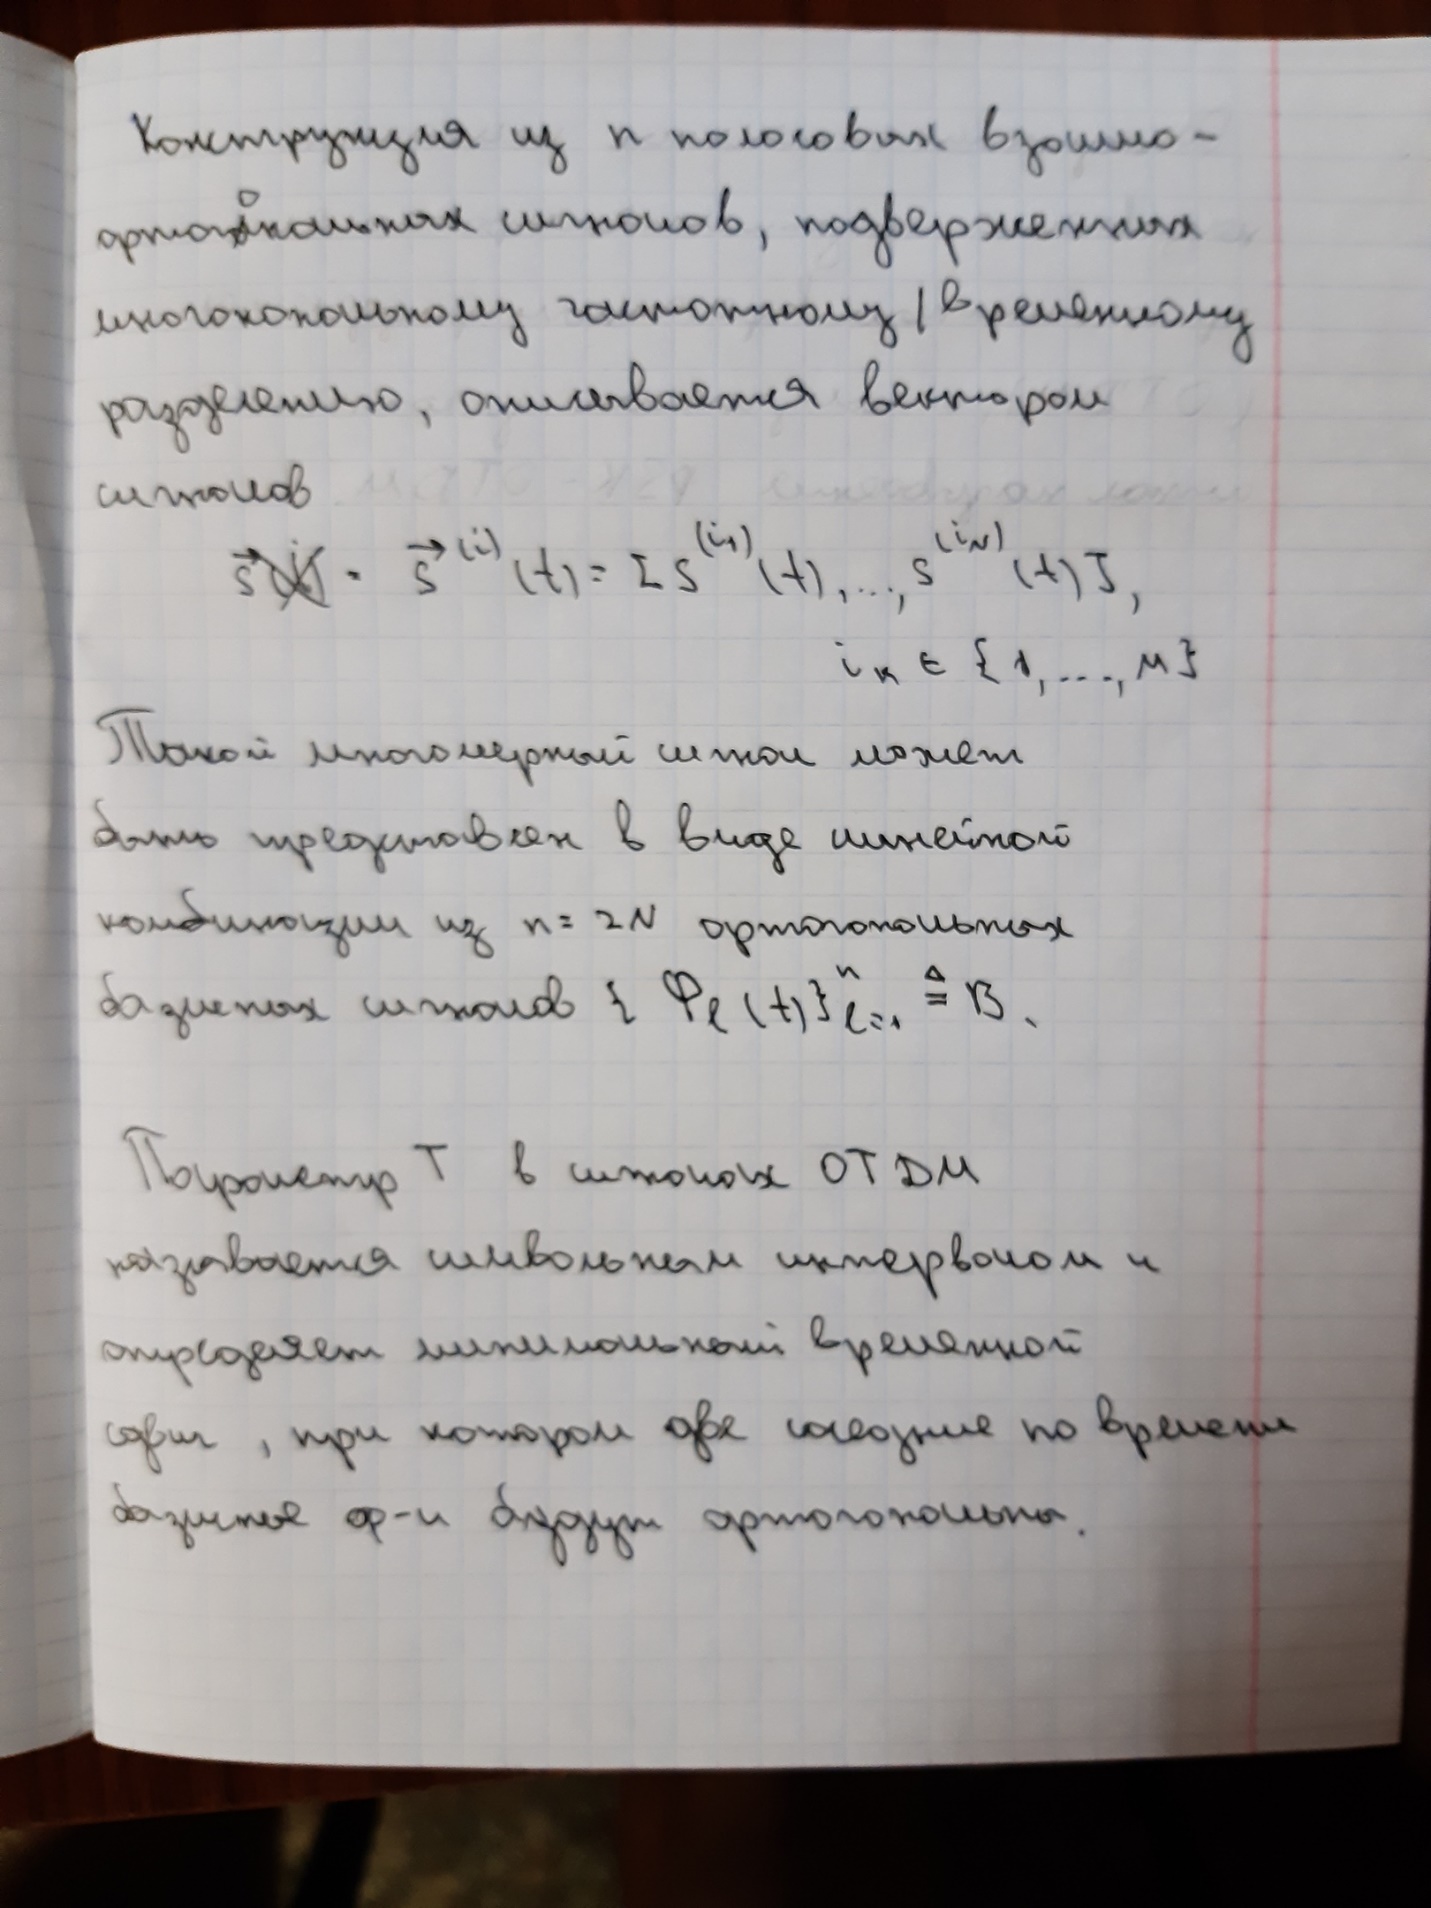 Конструкция из n полосовых взаимно-
ортогональных сигналов, подверженных
многоканальному частотному / временному
разделению, описывается вектором
сигналов
s⃗^(i)(t) = [s^(i₁)(t), ..., s^(i_N)(t)],
i_к ∈ {1, ..., M}
Такой многомерный сигнал может
быть представлен в виде линейной
комбинации из n = 2N ортогональных
базисных сигналов {φ_ℓ(t)}ⁿ_ℓ=1 ≜ B.
Параметр T в сигналах OTDM
называется символьным интервалом и
определяет минимальный временной
сдвиг, при котором две соседние по времени
базисные ф-и будут ортогональны.